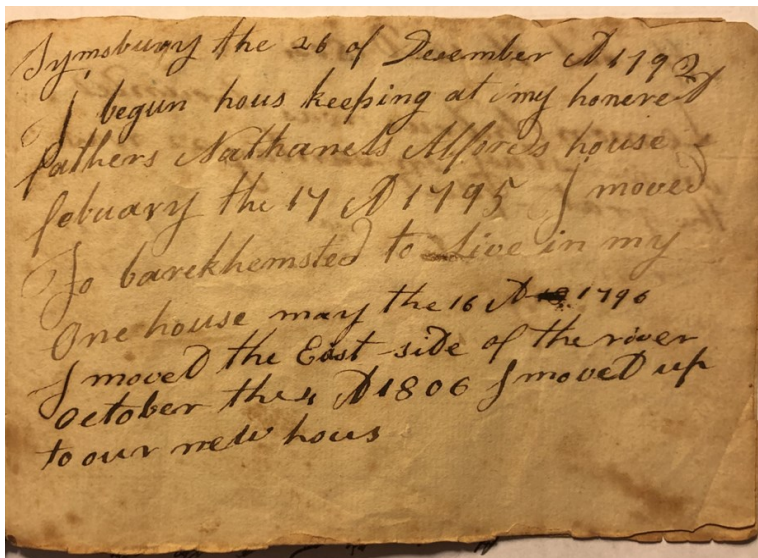 Symsbury the 26 of December AD 1792
I begun hous keeping at my honered
fathers Nathanels Alfords house
febuary the 17 AD 1795 I moved
To barekhemsted to live in my
One house may the 16 AD 1796
I moved the East side of the river
October the 4 AD 1806 I moved up
to our new hous